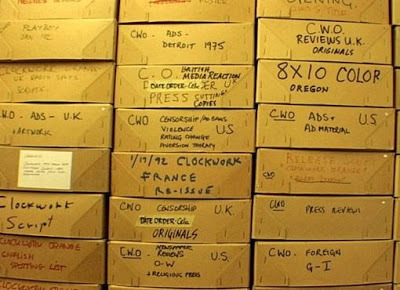 PLAYBOY
JAN '72
CLOCKWORK
U.K RADIO SPOTS
SCRIPTS
CWO - ADS - U.K.
+ ARTWORK
CLOCKWORK
SCRIPT
CLOCKWORK ORANGE
ENGLISH
SPOTTING LIST
CWO - ADS -
DETROIT 1975
C. O. BRITISH
MEDIA REACTION
DATE ORDER - Colo.
U.K
PRESS CUTTINGS
COPIES
CWO CENSORSHIP
VIOLENCE U.S
RATING CHANGE
AVERSION THERAPY
1/17/92 CLOCKWORK
FRANCE
RE-ISSUE
CWO CENSORSHIP U.K.
DATE ORDER - Colo.
ORIGINALS
CWO NEWSPAPER
REVIEWS U.S.
O-W
+ RELIGIOUS PRESS
OPENING
C.W.O.
REVIEWS U.K.
ORIGINALS
8X10 COLOR
OREGON
CWO ADS + U.S
AD MATERIAL
RELEASE
CWO
CWO PRESS REVIEWS
CWO. FOREIGN
G-I